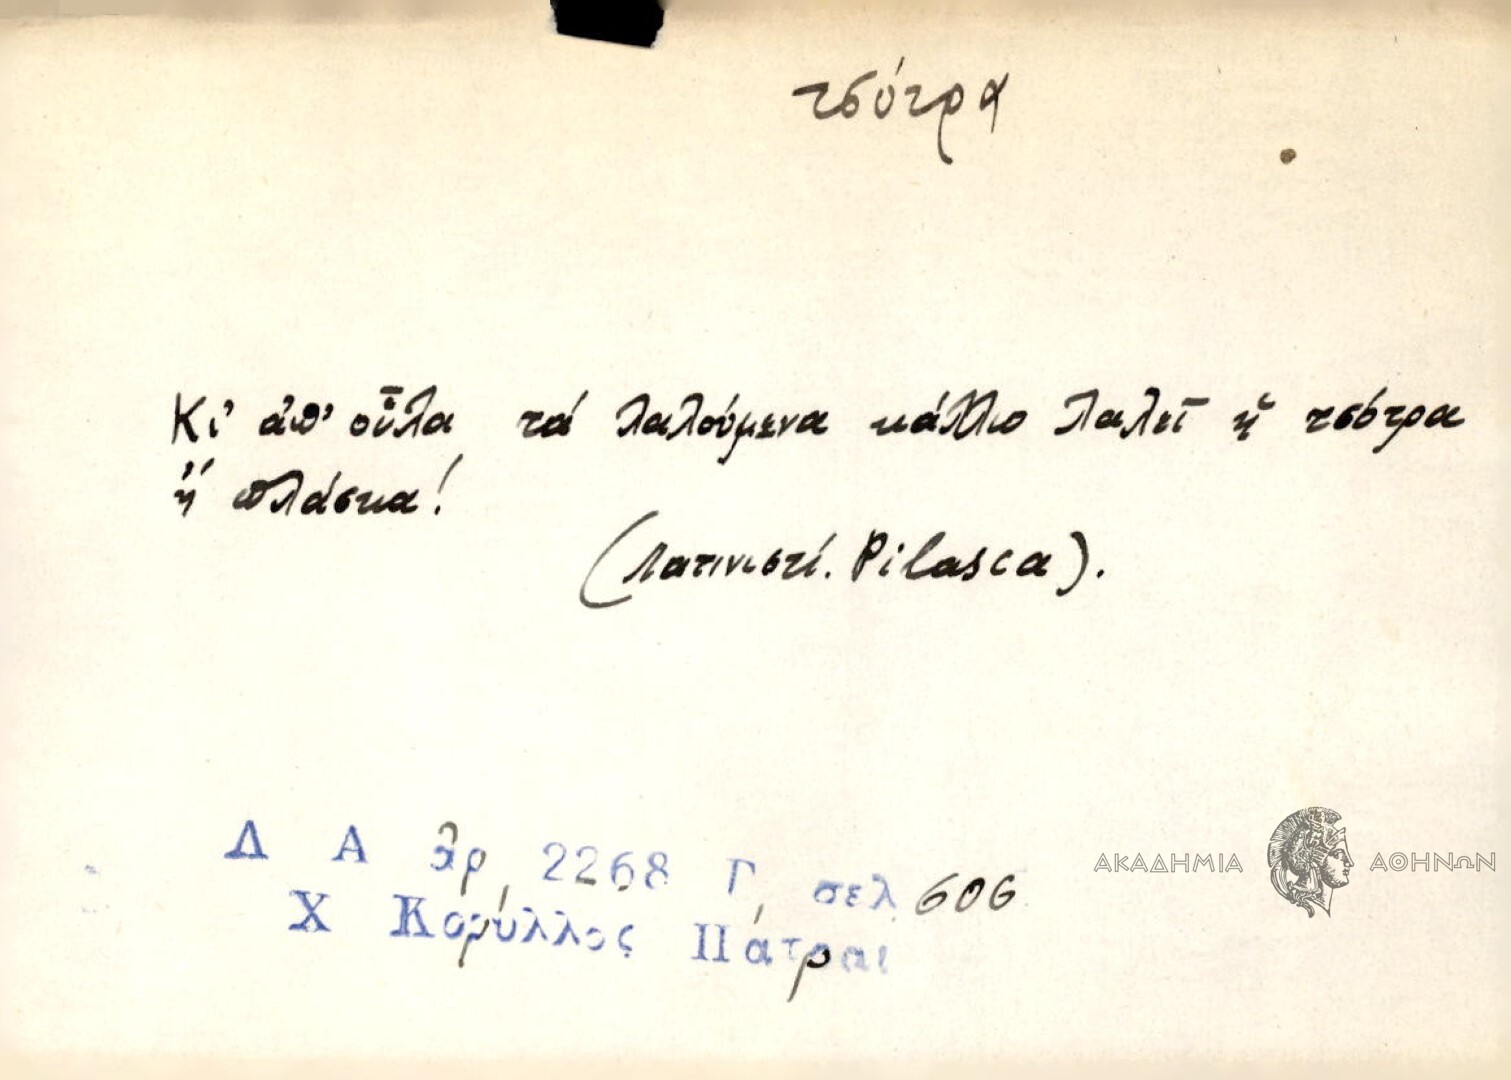 τσότρα
Κι' ἀπ' οὖλα τά λαλούμενα κάλλιο λαλεῖ ἡ τσότρα
ἡ πλάσκα!
(Λατινιστί. Pilasca).
Δ Α ἀρ, 2268 Γ, σελ 606
Χ Κορύλλος Πάτραι
ΑΚΑΔΗΜΙΑ ΑΘΗΝΩΝ